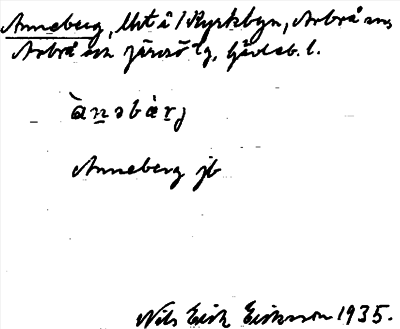 Anneberg, lht å 1 Kyrkbyn, Arbrå sn,
Arbrå och Järvsö tg, Gävleb. l.
ànəbær̀j
Anneberg jb
Nils Erik Eriksson 1935.